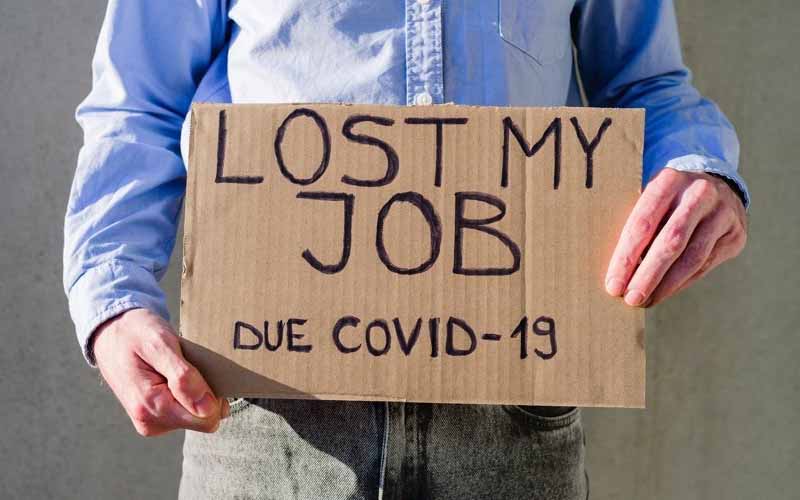 LOST MY
JOB
DUE COVID-19